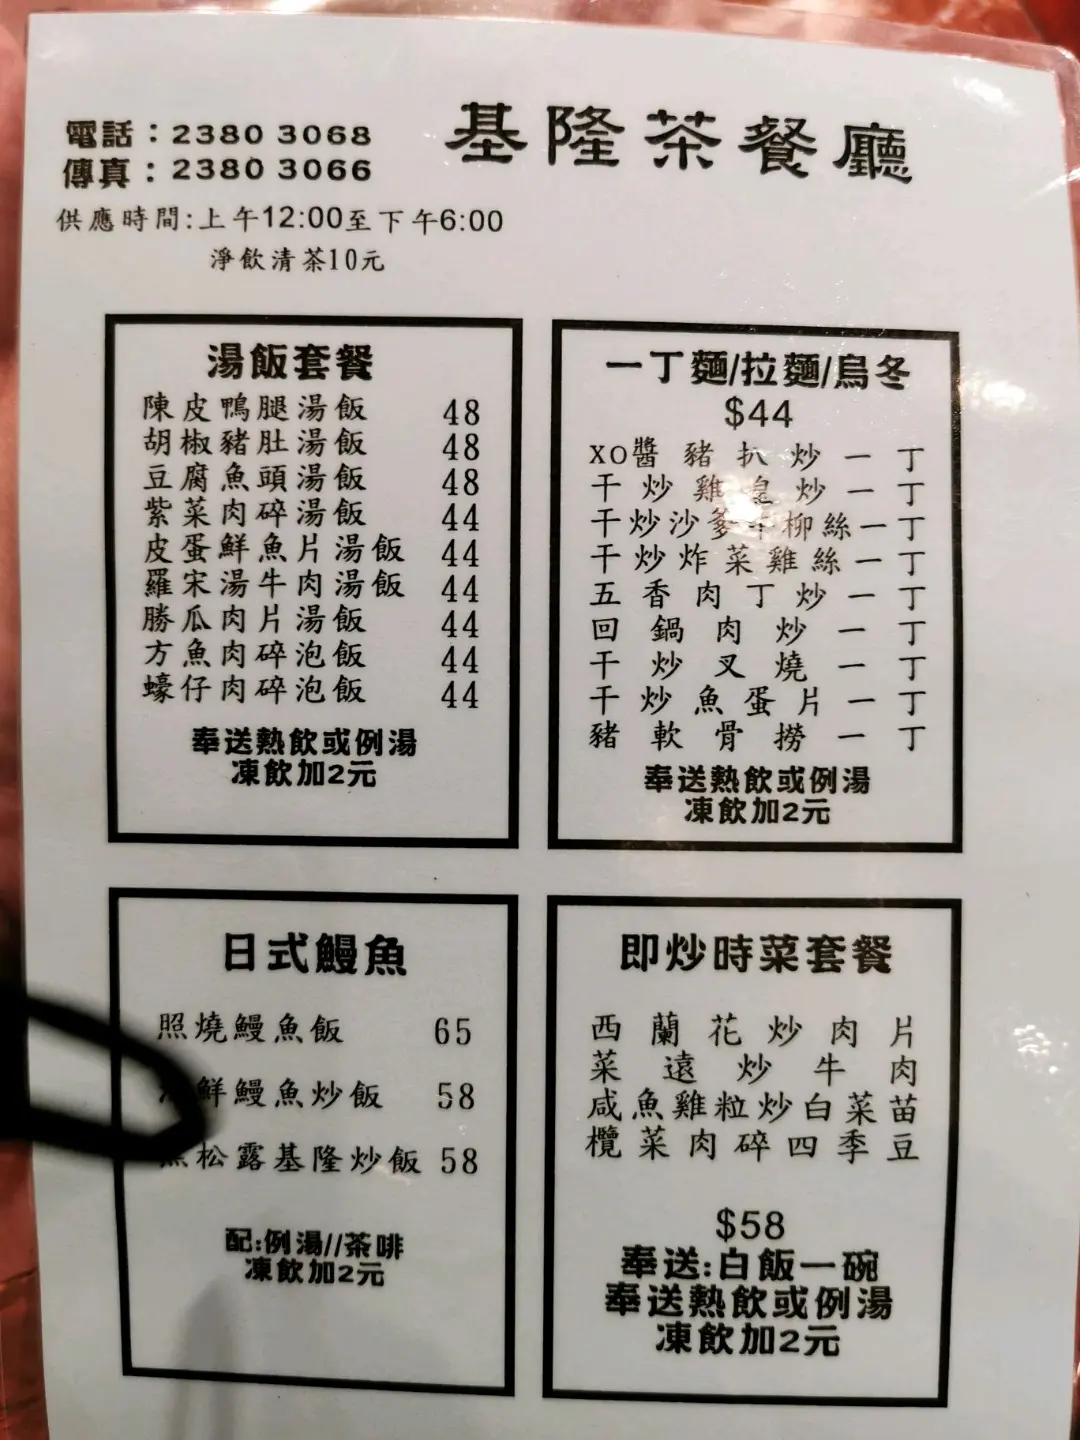 基隆茶餐廳
電話：2380 3068
傳真：2380 3066
供應時間:上午12:00至下午6:00
淨飲清茶10元
湯飯套餐
陳皮鴨腿湯飯 48
胡椒豬肚湯飯 48
豆腐魚頭湯飯 48
紫菜肉碎湯飯 44
皮蛋鮮魚片湯飯 44
羅宋湯牛肉湯飯 44
勝瓜肉片湯飯 44
方魚肉碎泡飯 44
蠔仔肉碎泡飯 44
奉送熱飲或例湯
凍飲加2元
一丁麵/拉麵/烏冬
$44
XO醬豬扒炒一丁
干炒雞皇炒一丁
干炒沙爹牛柳絲一丁
干炒炸菜雞絲一丁
五香肉丁炒一丁
回鍋肉炒一丁
干炒叉燒一丁
干炒魚蛋片一丁
豬軟骨撈一丁
奉送熱飲或例湯
凍飲加2元
日式鰻魚
照燒鰻魚飯 65
鮮鰻魚炒飯 58
松露基隆炒飯 58
配:例湯//茶啡
凍飲加2元
即炒時菜套餐
西蘭花炒肉片
菜遠炒牛肉
咸魚雞粒炒白菜苗
欖菜肉碎四季豆
$58
奉送:白飯一碗
奉送熱飲或例湯
凍飲加2元